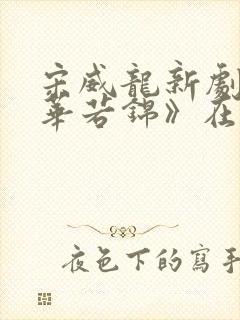 宋威龍新劇
華若錦》在
夜色下的寫手